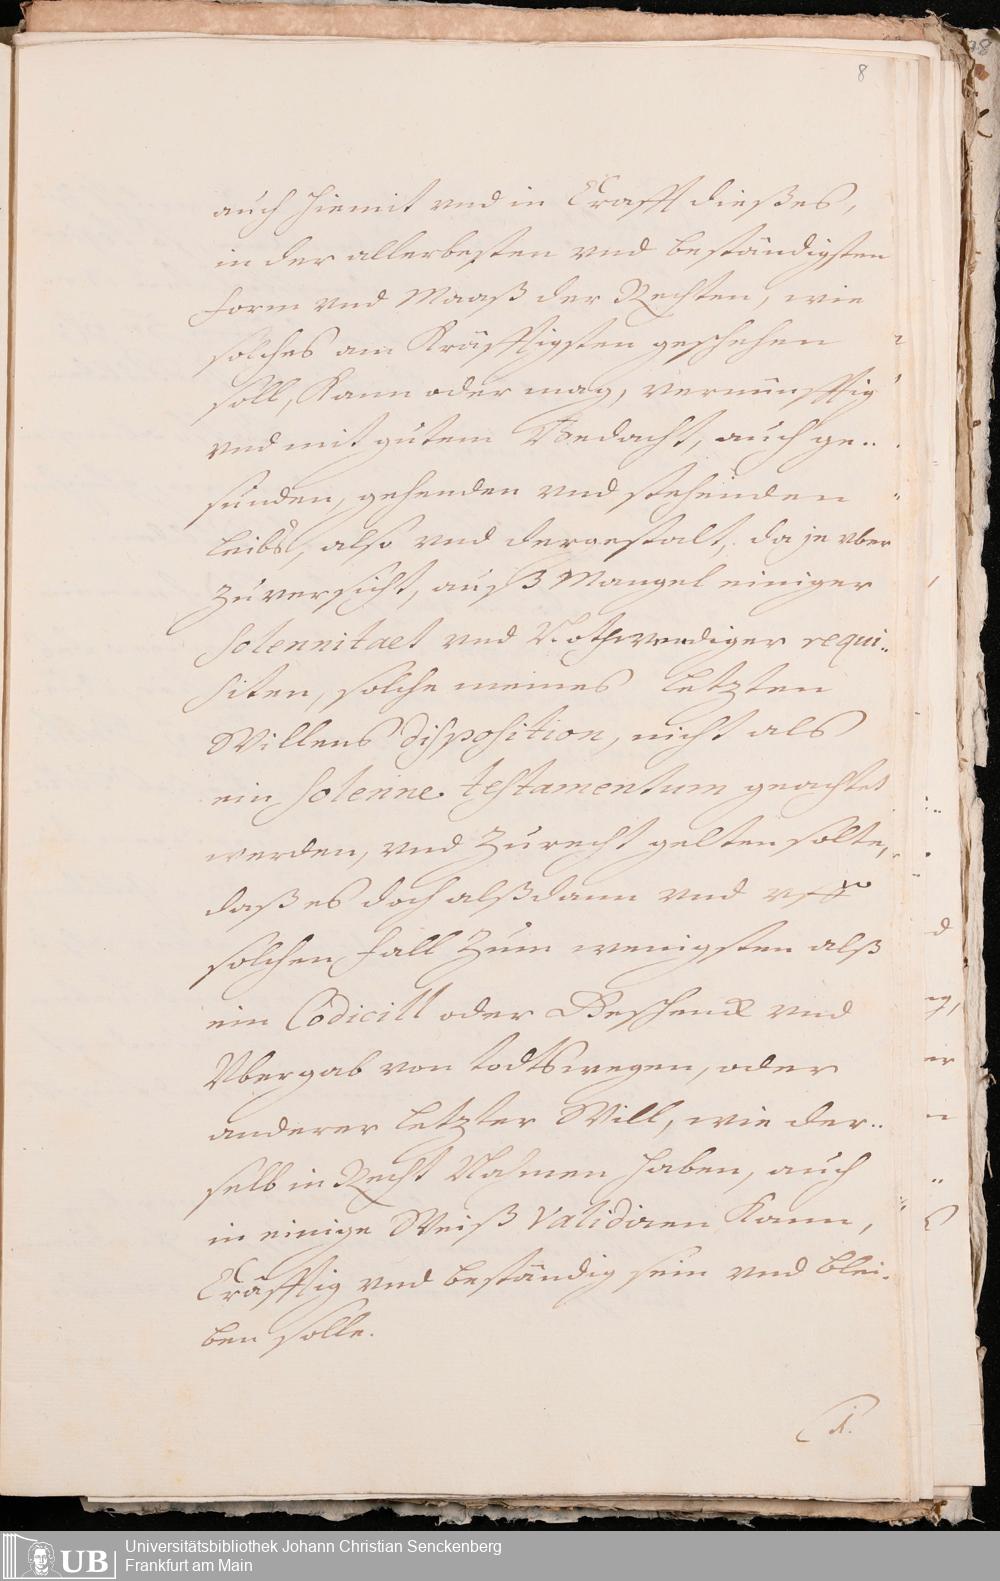 8
auch hiemit vnd in Crafft dießes,
in der allerbesten vnd beständigsten
form vnd Maaß der Rechten, wie
solches am Kräfftigsten geschehen
soll, Kann oder mag, vernünfftig
vnd mit gutem Bedacht, auch ge..
sunden, gehenden vnd stehenden
Leibs, also vnd dergestalt, da je vber
Zuversicht, auß Mangel einiger
Solennitaet vnd Nothwendiger requi..
siten, solche meines Letzten
Willens disposition, nicht als
ein solenne testamentum geachtet
werden, vnd Zurecht gelten solte,
daß es doch alßdann vnd vff
solchen fall Zum wenigsten alß
ein Codicill oder Geschenck vnd
Vbergab von todtswegen, oder
anderer Letzter Will, wie der..
selb in Recht Nahmen haben, auch
in einige Weiß Validiren Kann,
Cräfftig vnd beständig sein vnd blei..
ben solle.
UB
Universitätsbibliothek Johann Christian Senckenberg
Frankfurt am Main